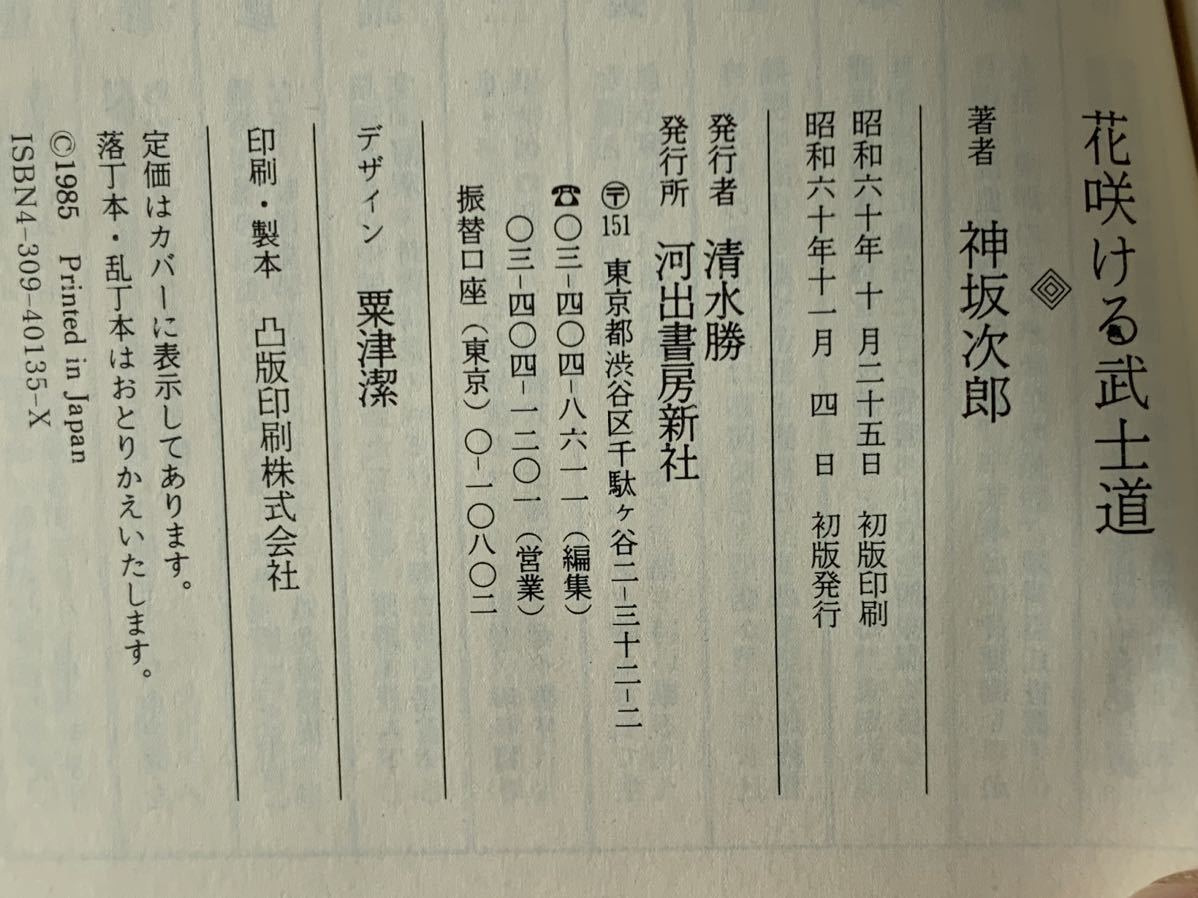 花咲ける武士道
著者 神坂次郎
昭和六十年 十 月二十五日 初版印刷
昭和六十年十一月 四 日 初版発行
発行者 清水勝
発行所 河出書房新社
〶151 東京都渋谷区千駄ヶ谷二-三十二-二
☎〇三-四〇四-八六一一(編集)
〇三-四〇四-一二〇一(営業)
振替口座(東京)〇-一〇八〇二
デザイン 粟津潔
印刷・製本 凸版印刷株式会社
定価はカバーに表示してあります。
落丁本・乱丁本はおとりかえいたします。
©1985 Printed in Japan
ISBN4-309-40135-X